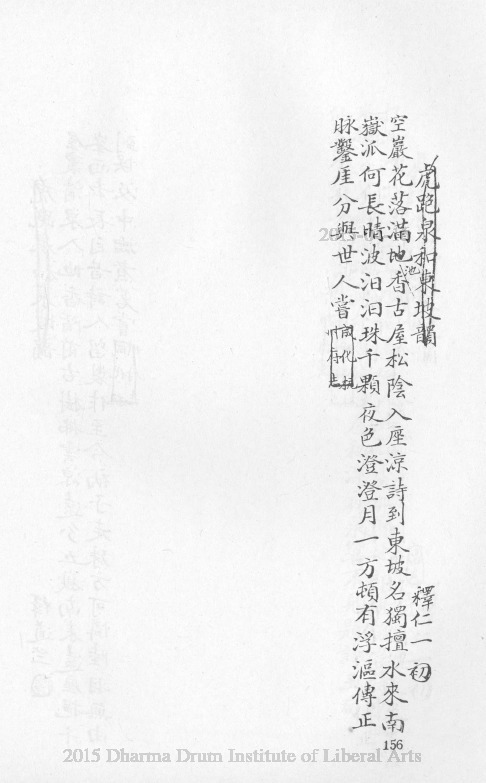 虎跑泉和東坡韻
釋仁一初
空巖花落滿地香古屋松陰入座涼詩到東坡名獨擅水來南
池
嶽派何長晴波汩汩珠千顆夜色澄澄月一方頓有浮漚傳正
脉鑿厓分與世人嘗
成化杭
州府志
156
2015 Dharma Drum Institute of Liberal Arts